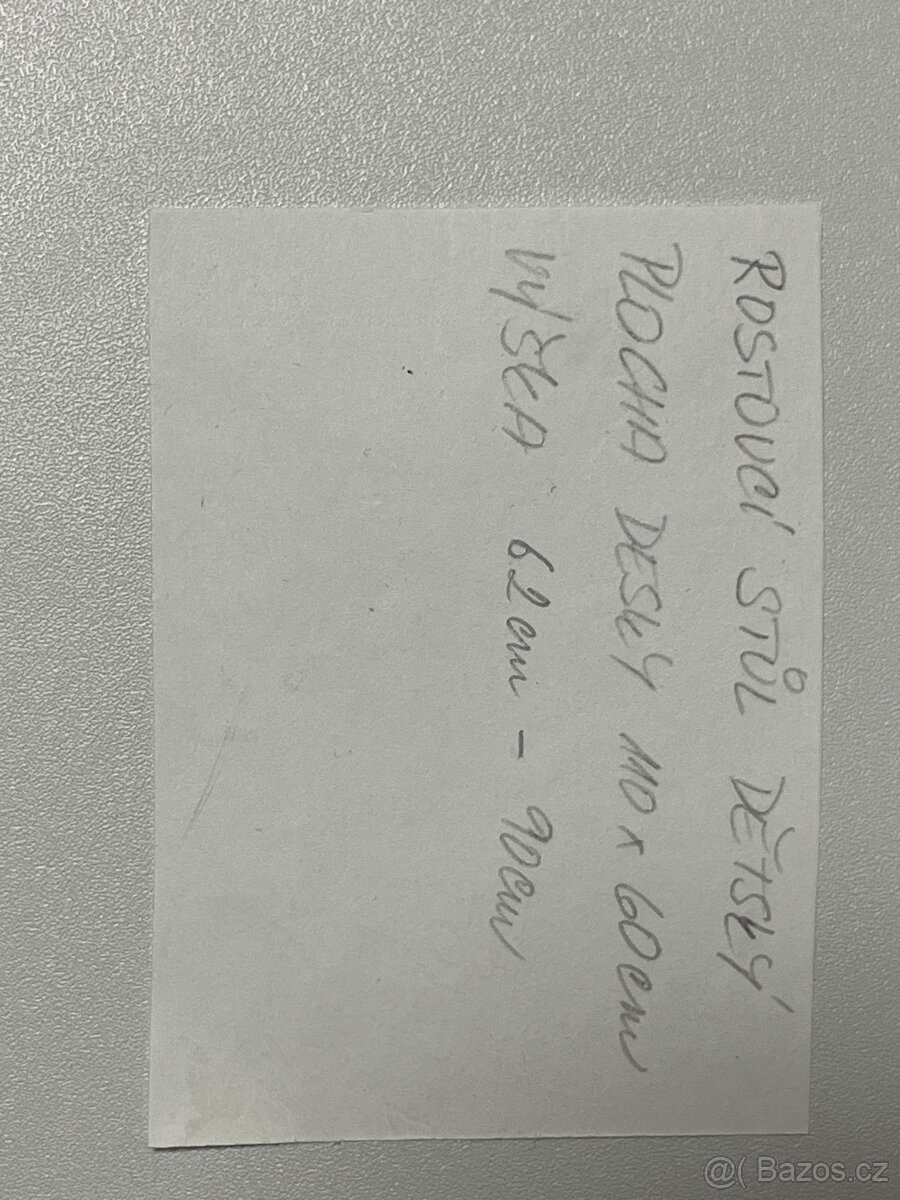 ROSTOUCÍ STŮL DĚTSKÝ
PLOCHA DESKY 110 x 60cm
VÝŠKA 62cm - 90cm
@( Bazos.cz